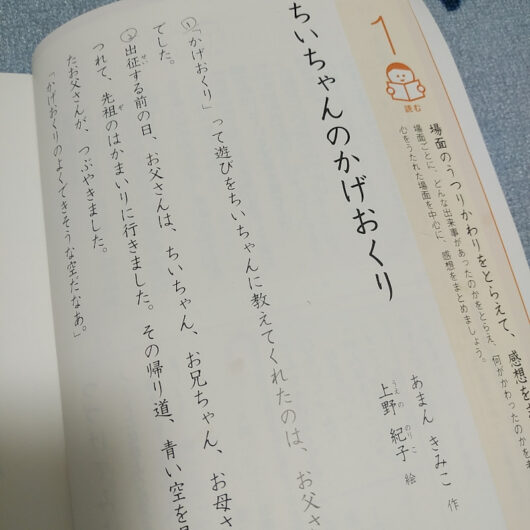 1
読む
場面のうつりかわりをとらえて、感想を
場面ごとに、どんな出来事があったのかをとらえ、何がかわったのかを
心をうたれた場面を中心に、感想をまとめましょう。
ちいちゃんのかげおくり
あまん きみこ 作
上野 紀子 絵
うえの のりこ
①「かげおくり」って遊びをちいちゃんに教えてくれたのは、お父さ
でした。
②出征する前の日、お父さんは、ちいちゃん、お兄ちゃん、お母さ
せい
つれて、先祖のはかまいりに行きました。その帰り道、青い空を見
ぞ
たお父さんが、つぶやきました。
「かげおくりのよくできそうな空だなあ。」